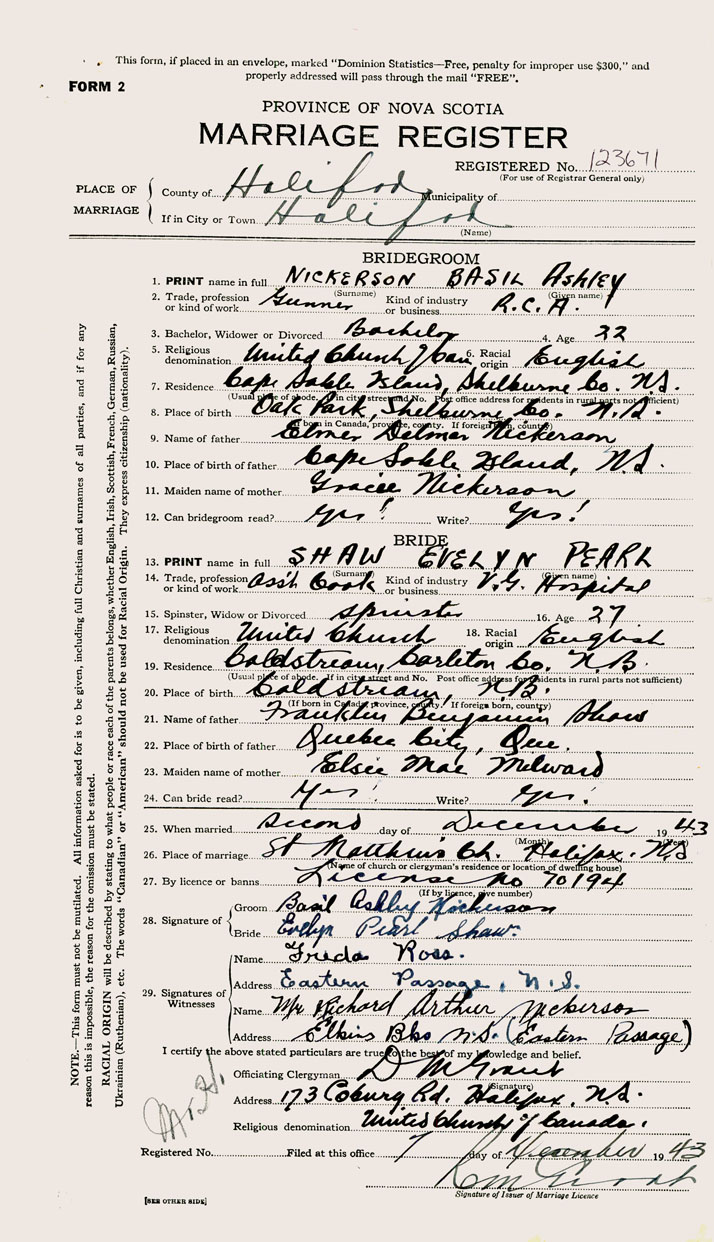 This form, if placed in an envelope, marked "Dominion Statistics—Free, penalty for improper use $300," and
properly addressed will pass through the mail "FREE".
FORM 2
PROVINCE OF NOVA SCOTIA
MARRIAGE REGISTER
REGISTERED No. 123671
(For use of Registrar General only)
PLACE OF MARRIAGE
County of Halifax Municipality of
If in City or Town Halifax
(Name)
BRIDEGROOM
1. PRINT name in full NICKERSON BASIL Ashley
(Surname) (Given name)
2. Trade, profession or kind of work Gunner Kind of industry or business R.C.A.
3. Bachelor, Widower or Divorced Bachelor 4. Age 22
5. Religious denomination United Church of Can 6. Racial origin English
7. Residence Cape Sable Island, Shelburne Co. N.S.
(Usual place of abode. If in city street and No. Post office address for residents in rural parts not sufficient)
8. Place of birth Oak Park, Shelburne Co. N.S.
(If born in Canada, province, county. If foreign born, county)
9. Name of father Elmer Delmar Nickerson
10. Place of birth of father Cape Sable Island, N.S.
11. Maiden name of mother Gracee Nickerson
12. Can bridegroom read? Yes! Write? Yes!
BRIDE
13. PRINT name in full SHAW EVELYN PEARL
(Surname) (Given name)
14. Trade, profession or kind of work Ass't Cook Kind of industry or business V.G. Hospital
15. Spinster, Widow or Divorced Spinster 16. Age 27
17. Religious denomination United Church 18. Racial origin English
19. Residence Coldstream, Carleton Co. N.B.
(Usual place of abode. If in city street and No. Post office address for residents in rural parts not sufficient)
20. Place of birth Coldstream, N.B.
(If born in Canada, province, county. If foreign born, county)
21. Name of father Franklin Benjamin Shaw
22. Place of birth of father Quebec City, Que.
23. Maiden name of mother Elsie Mae Milward
24. Can bride read? Yes! Write? Yes!
25. When married Second day of December 1943
(Month) (Year)
26. Place of marriage St Matthews Ch. Halifax. N.S
(Name of church or clergyman's residence or location of dwelling house)
27. By licence or banns License No 70194
(If by licence, give number)
28. Signature of
Groom Basil Ashley Nickerson
Bride Evelyn Pearl Shaw.
29. Signatures of Witnesses
Name Freda Ross.
Address Eastern Passage, N.S.
Name Mr Richard Arthur Nickerson
Address Elkins Bks N.S. (Eastern Passage)
I certify the above stated particulars are true to the best of my knowledge and belief.
Officiating Clergyman D M Grant
(Signature)
Address 173 Coburg Rd. Halifax, N.S.
Religious denomination United Church of Canada.
Registered No. Filed at this office 7 day of December 1943
Signature of Issuer of Marriage Licence
[SEE OTHER SIDE]
NOTE.—This form must not be mutilated. All information asked for is to be given, including full Christian and surnames of all parties, and if for any
reason this is impossible, the reason for the omission must be stated.
RACIAL ORIGIN will be described by stating to what people or race each of the parents belongs, whether English, Irish, Scottish, French, German, Russian,
Ukrainian (Ruthenian), etc. The words "Canadian" or "American" should not be used for Racial Origin. They express citizenship (nationality).